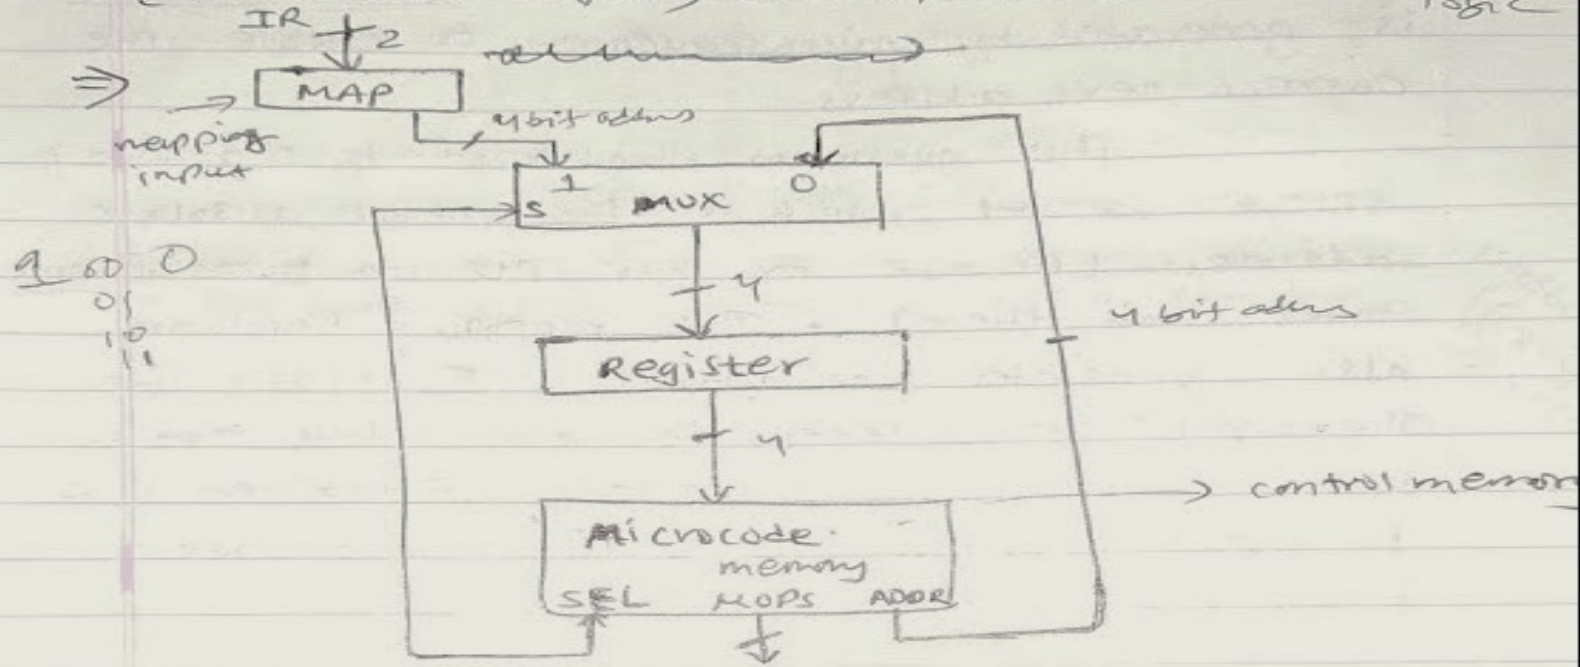 logic
IR 2
⇒ MAP
4 bit addrs
mapping
input
1 0
S MUX
9 00 0
01
10
11
4
4 bit addrs
Register
4
→ control memor
Microcode
memory
SEL MOPS ADDR